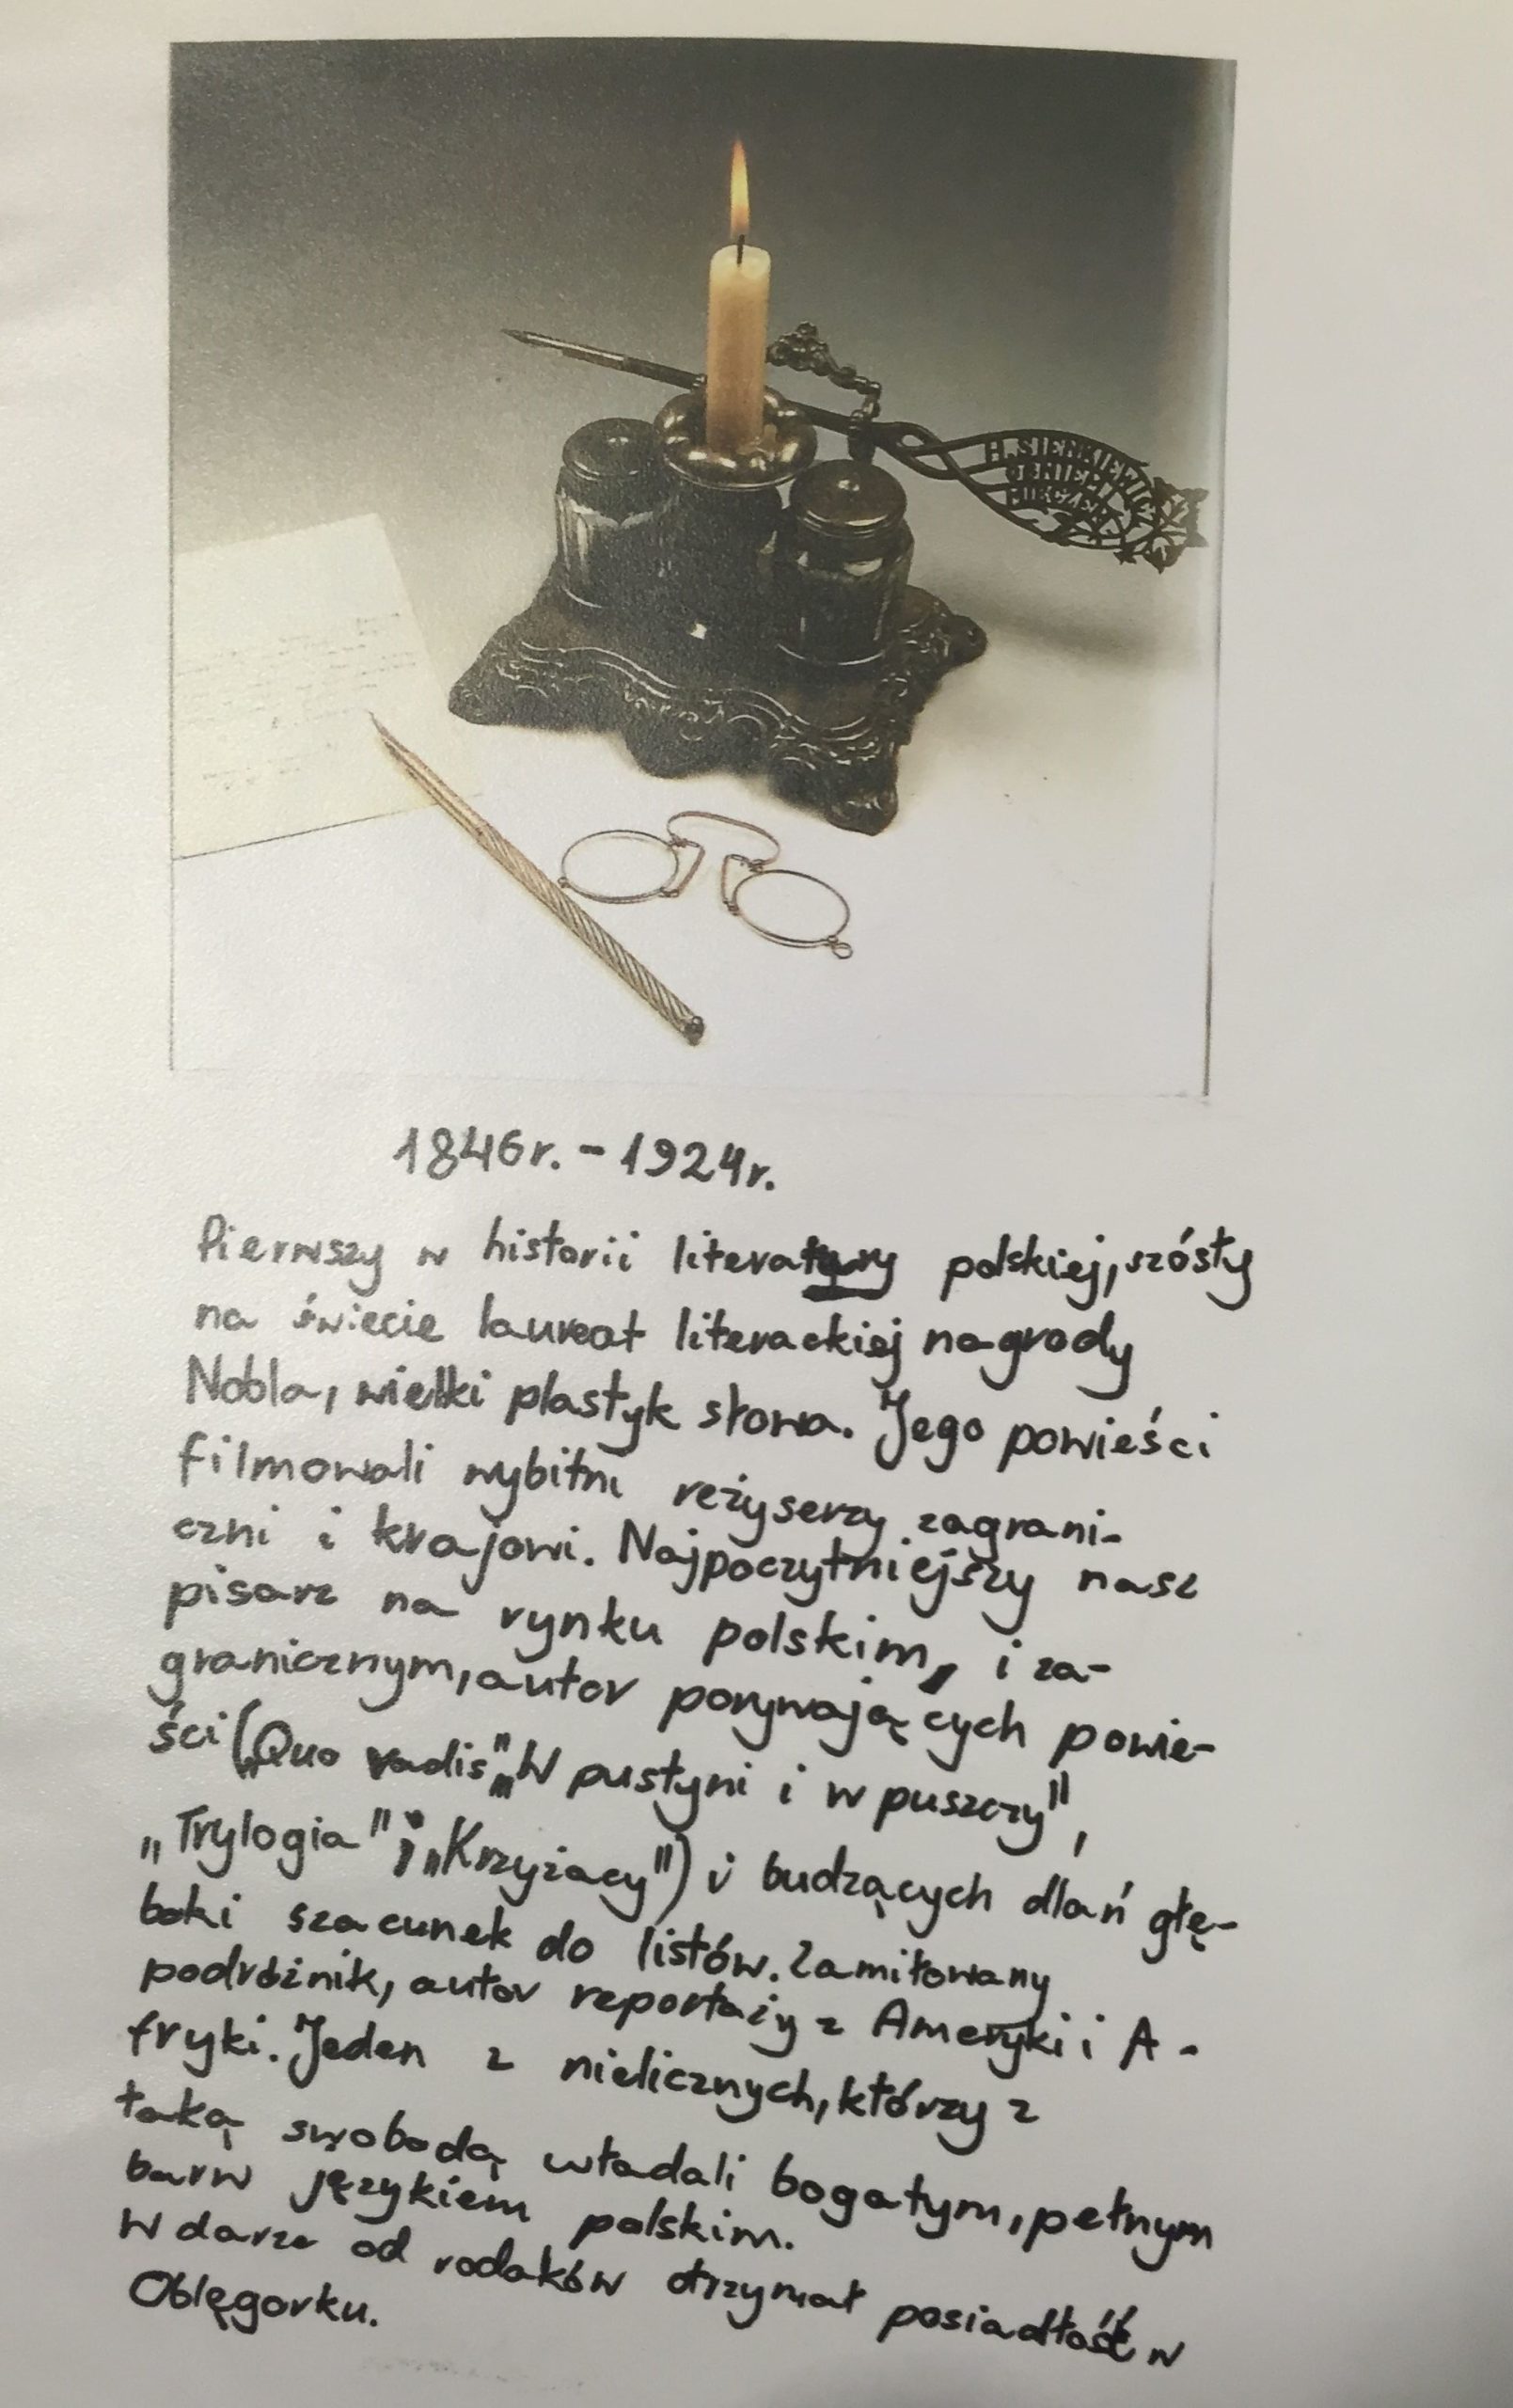 H. SIENKIEWICZ
OGNIEM I
MIECZEM
1846r. - 1924r.
Pierwszy w historii literatury polskiej, szósty
na świecie laureat literackiej nagrody
Nobla, wielki plastyk słowa. Jego powieści
filmowali wybitni reżyserzy zagrani-
czni i krajowi. Najpoczytniejszy nasz
pisarz na rynku polskim, i za-
granicznym, autor porywających powie-
ści („Quo vadis”, „W pustyni i w puszczy”,
„Trylogia” i „Krzyżacy”) i budzących dlań głę-
boki szacunek do listów. Zamiłowany
podróżnik, autor reportaży z Ameryki i A-
fryki. Jeden z nielicznych, którzy z
taką swobodą władali bogatym, pełnym
barw językiem polskim.
W darze od rodaków otrzymał posiadłość w
Oblęgorku.